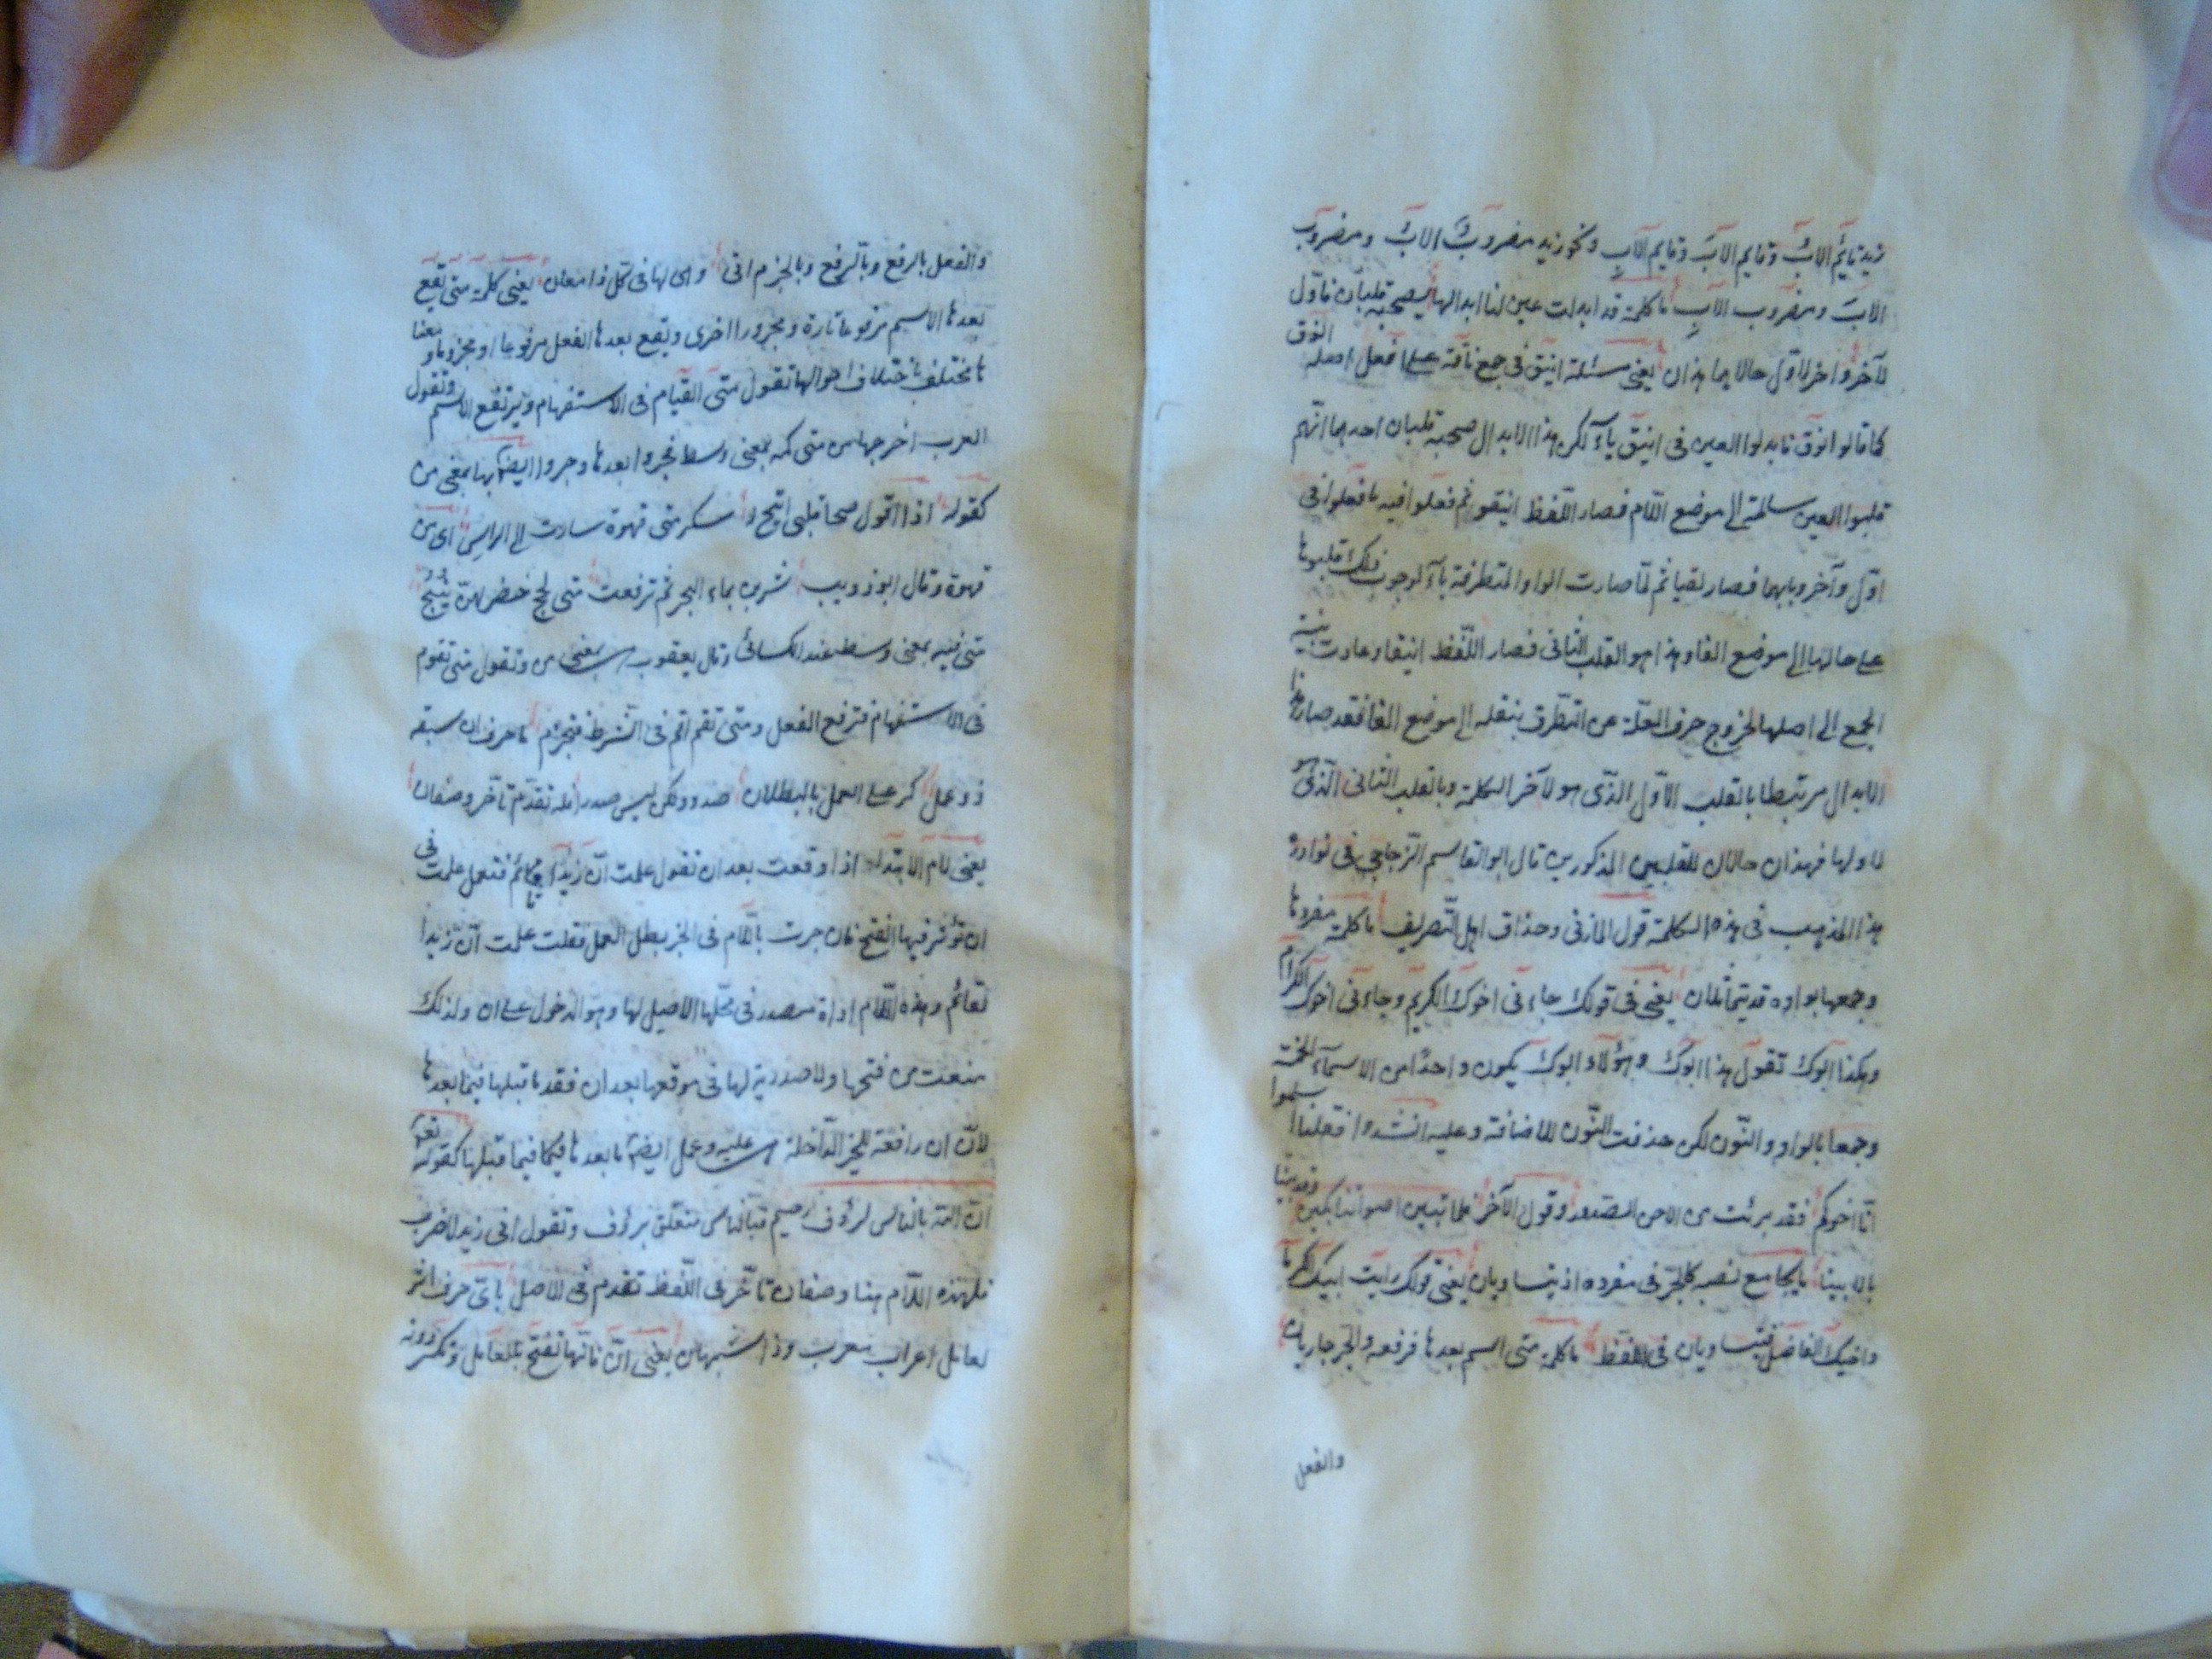 زيد قايم الابُ وقايم الابَ وقايم الابِ ونحو زيد مضروب الاب ومضروب
الابَ ومضروب الابِ ما كلمة قد ابدلت عين لنا ابدالها يصحبه قلبان فاول
لآخر وآخر لاول حالا بما بذان يعنى مسئلة اينق فى جمع ناقة على افعل اصله انوق
كما قالوا نوق فابدلوا العين فى اينق ياء لكن هذا الابدال صحبه قلبان احدهما انّهم
قلبوا العين سالمة الى موضع اللام فصار اللّفظ انيقو ثم فعلوا فيه ما فعلوا فى
اول وآخر وبابهما فصار لقيا ثم لمّا صارت الواو المتطرفة ياء لوجوب ذلك قلبوها
على حالها الى موضع الفا وهذا هو القلب الثانى فصار اللّفظ اينقا وعادت بنية
الجمع الى اصلها لخروج حرف العلّة عن التطرّف بنقله الى موضع الفا فقد صار هذا
الابدال مرتبطا بالقلب الاوّل الذّى هو لآخر الكلمة وبالقلب الثانى الّذى هو
لاولها فهذان حالان للقلبين المذكورين قال ابو القاسم الزجاجى فى نوادره
هذا المذهب فى هذه الكلمة قول المازنى وحذاق اهل التّصريف ما كلمة مفردها
وجمعها بواوه قد يتماثلان يعنى فى قولك جاءنى اخوك الكريم وجاءنى اخوك الكرام
وهكذا ابوك تقول هذا ابوك وهؤلاء ابوك يكون واحدًا من الاسماء الخمسة
وجمعا بالواو والنّون لكن حذفت النّون للاضافة وعليه انشدوا فقلنا اسلموا
انّا اخوكم فقد برئت من الاحن الصّدور وقول الآخر فلما تبيّن اصواتنا بكين وفديننا
بالابينا ما كجامع نصبه كالجرّ فى مفرده اذ يتساويان يعنى قولك رايت ابيك الكرما
واخيك الفاضل فيتساويان فى اللفظ ما كلمة متى اسم بعدها فرفعه والجر جاريان
والفعل
والفعل بالرفع وبالرفع وبالجزم اتى واى لها فى كل ذا معان يعنى كلمة متى تقع
بعدها الاسم مرفوعا تارة ومجرورا اخرى ويقع بعدها الفعل مرفوعا او مجزوما و معنا
ها يختلف باختلاف احوالها تقول متى القيام فى الاستفهام ويرتفع الاسم وتقول
العرب اخرجها من متى كمه بمعنى وسط فجروا بعدها وجروا ايضا بها بمعنى من
كقوله اذا اقول صحا قلبى اتيح له سكر متى قهوة سارت الى الراس اى من
قهوة وقال ابو ذويب شربن بماء البحر ثم ترفعت متى لجج خضر لهنّ نئيج
متى فيه بمعنى وسط عند الكسائى وقال يعقوب بمعنى من وتقول متى تقوم
فى الاستفهام فترفع الفعل ومتى تقم اقم فى الشرط فتجزم ما حرف ان سبقه
ذو عمل كر على العمل بالبطلان صدر ولكن ليس صدرا فله تقدّم تأخّر وصفان
يعنى لام الابتداء اذا وقعت بعد ان تقول علمت انّ زيدًا قائم فتعمل علمت فى
ان تؤثر فيها الفتح فان جرت باللّام فى الخبر بطل العمل فقلت علمت انّ زيدا
لقائم وهذه اللّام اداة صدر فى محلّها الاصيل لها وهو الدخول على ان ولذلك
منعت من فتحها ولا صدرية لها فى موقعها بعد ان فقد ما قبلها فيما بعدها
لانّ ان رافعة للخبر الدّاخلة عليه وعمل ايضا ما بعدها فيما قبلها كقوله تعم
انّ الله بالناس لرؤف رحيم فبالناس متعلّق برؤف وتقول انى زيد لاضرب
فلهذه اللّام هنا وصفان تأخّر فى اللّفظ تقدم فى الاصل باىّ حرف اثر
لعامل اعراب معرب وذا يعنى انّ فانّها تفتح بالعامل وتكسر دونه